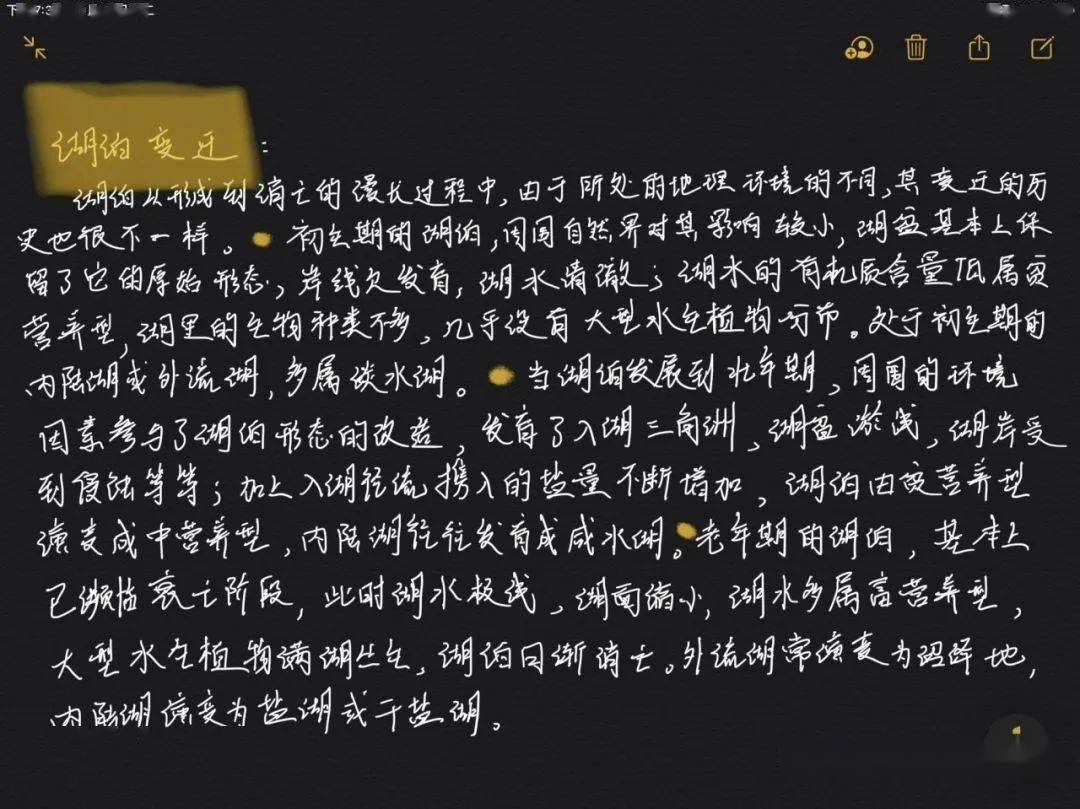 湖泊变迁：
湖泊从形成到消亡的漫长过程中,由于所处的地理环境的不同,其变迁的历
史也很不一样。初生期的湖泊,周围自然界对其影响较小,湖盆基本上保
留了它的原始形态,岸线欠发育,湖水清澈；湖水的有机质含量低属贫
营养型,湖里的生物种类不多,几乎没有大型水生植物分布。处于初生期的
内陆湖或外流湖,多属淡水湖。当湖泊发展到壮年期,周围的环境
因素参与了湖泊形态的改造,发育了入湖三角洲,湖盆淤浅,湖岸受
到侵蚀等等；加上入湖径流携入的盐量不断增加,湖泊由贫营养型
演变成中营养型,内陆湖往往发育成咸水湖。老年期的湖泊,基本上
已濒临衰亡阶段,此时湖水极浅,湖面缩小,湖水多属富营养型,
大型水生植物满湖丛生,湖泊日渐消亡。外流湖常演变为沼泽地,
内陆湖演变为盐湖或干盐湖。